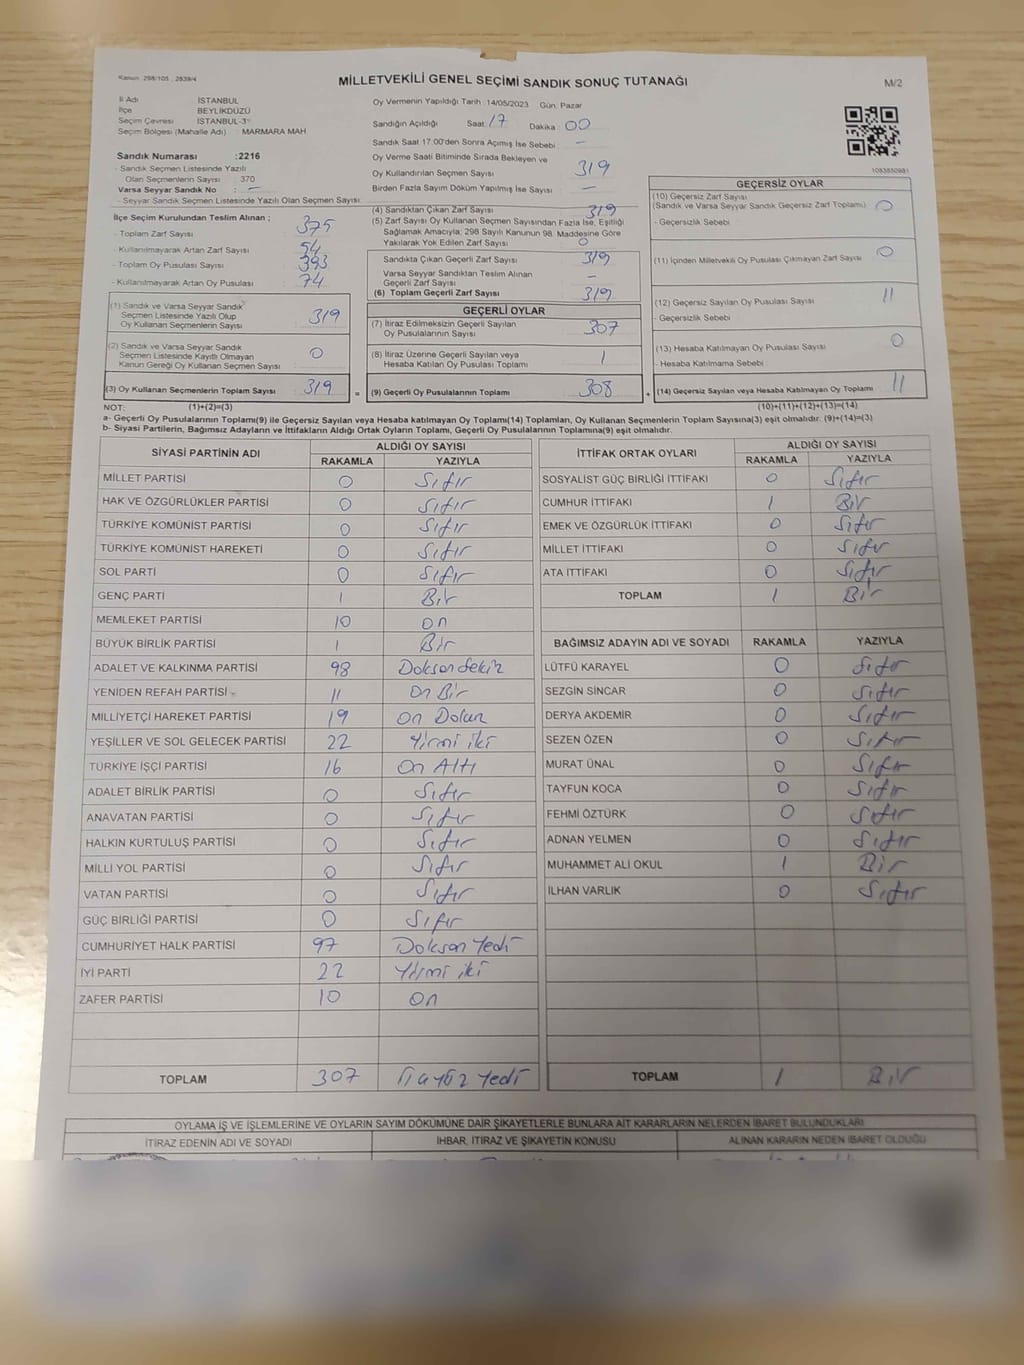 Kanun: 298/105 , 2839/4
MİLLETVEKİLİ GENEL SEÇİMİ SANDIK SONUÇ TUTANAĞI
M/2
İl Adı İSTANBUL
İlçe BEYLİKDÜZÜ
Seçim Çevresi İSTANBUL-3
Seçim Bölgesi (Mahalle Adı) MARMARA MAH
Sandık Numarası :2216
- Sandık Seçmen Listesinde Yazılı
Olan Seçmenlerin Sayısı : 370
Varsa Seyyar Sandık No : –
- Seyyar Sandık Seçmen Listesinde Yazılı Olan Seçmen Sayısı:
Oy Vermenin Yapıldığı Tarih :14/05/2023 Gün: Pazar
Sandığın Açıldığı Saat: 17 Dakika : 00
Sandık Saat 17:00'den Sonra Açılmış İse Sebebi : –
Oy Verme Saati Bitiminde Sırada Bekleyen ve
Oy Kullandırılan Seçmen Sayısı : 319
Birden Fazla Sayım Döküm Yapılmış İse Sayısı : –
1083850981
İlçe Seçim Kurulundan Teslim Alınan ;
- Toplam Zarf Sayısı : 375
- Kullanılmayarak Artan Zarf Sayısı : 54
- Toplam Oy Pusulası Sayısı : 393
- Kullanılmayarak Artan Oy Pusulası : 74
(1) Sandık ve Varsa Seyyar Sandık
Seçmen Listesinde Yazılı Olup
Oy Kullanan Seçmenlerin Sayısı : 319
(2) Sandık ve Varsa Seyyar Sandık
Seçmen Listesinde Kayıtlı Olmayan
Kanun Gereği Oy Kullanan Seçmen Sayısı : 0
(3) Oy Kullanan Seçmenlerin Toplam Sayısı : 319
(4) Sandıktan Çıkan Zarf Sayısı : 319
(5) Zarf Sayısı Oy Kullanan Seçmen Sayısından Fazla İse, Eşitliği
Sağlamak Amacıyla; 298 Sayılı Kanunun 98. Maddesine Göre
Yakılarak Yok Edilen Zarf Sayısı : 0
Sandıkta Çıkan Geçerli Zarf Sayısı : 319
Varsa Seyyar Sandıktan Teslim Alınan
Geçerli Zarf Sayısı : –
(6) Toplam Geçerli Zarf Sayısı : 319
GEÇERLİ OYLAR
(7) İtiraz Edilmeksizin Geçerli Sayılan
Oy Pusulalarının Sayısı : 307
(8) İtiraz Üzerine Geçerli Sayılan veya
Hesaba Katılan Oy Pusulası Toplamı : 1
= (9) Geçerli Oy Pusulalarının Toplamı : 308
GEÇERSİZ OYLAR
(10) Geçersiz Zarf Sayısı
(Sandık ve Varsa Seyyar Sandık Geçersiz Zarf Toplamı) : 0
- Geçersizlik Sebebi :
(11) İçinden Milletvekili Oy Pusulası Çıkmayan Zarf Sayısı : 0
(12) Geçersiz Sayılan Oy Pusulası Sayısı : 11
- Geçersizlik Sebebi :
(13) Hesaba Katılmayan Oy Pusulası Sayısı : 0
- Hesaba Katılmama Sebebi :
+ (14) Geçersiz Sayılan veya Hesaba Katılmayan Oy Toplamı : 11
NOT: (1)+(2)=(3) (10)+(11)+(12)+(13)=(14)
a- Geçerli Oy Pusulalarının Toplamı(9) ile Geçersiz Sayılan veya Hesaba katılmayan Oy Toplamı(14) Toplamları, Oy Kullanan Seçmenlerin Toplam Sayısına(3) eşit olmalıdır. (9)+(14)=(3)
b- Siyasi Partilerin, Bağımsız Adayların ve İttifakların Aldığı Oyların Toplamı, Geçerli Oy Pusulalarının Toplamına(9) eşit olmalıdır.
SİYASİ PARTİNİN ADI ALDIĞI OY SAYISI
RAKAMLA YAZIYLA
MİLLET PARTİSİ 0 Sıfır
HAK VE ÖZGÜRLÜKLER PARTİSİ 0 Sıfır
TÜRKİYE KOMÜNİST PARTİSİ 0 Sıfır
TÜRKİYE KOMÜNİST HAREKETİ 0 Sıfır
SOL PARTİ 0 Sıfır
GENÇ PARTİ 1 Bir
MEMLEKET PARTİSİ 10 on
BÜYÜK BİRLİK PARTİSİ 1 Bir
ADALET VE KALKINMA PARTİSİ 98 Doksan Sekiz
YENİDEN REFAH PARTİSİ 11 On Bir
MİLLİYETÇİ HAREKET PARTİSİ 19 On Dokuz
YEŞİLLER VE SOL GELECEK PARTİSİ 22 Yirmi iki
TÜRKİYE İŞÇİ PARTİSİ 16 On Altı
ADALET BİRLİK PARTİSİ 0 Sıfır
ANAVATAN PARTİSİ 0 Sıfır
HALKIN KURTULUŞ PARTİSİ 0 Sıfır
MİLLİ YOL PARTİSİ 0 Sıfır
VATAN PARTİSİ 0 Sıfır
GÜÇ BİRLİĞİ PARTİSİ 0 Sıfır
CUMHURİYET HALK PARTİSİ 97 Doksan Yedi
İYİ PARTİ 22 Yirmi iki
ZAFER PARTİSİ 10 On
TOPLAM 307 Üç yüz Yedi
İTTİFAK ORTAK OYLARI ALDIĞI OY SAYISI
RAKAMLA YAZIYLA
SOSYALİST GÜÇ BİRLİĞİ İTTİFAKI 0 Sıfır
CUMHUR İTTİFAKI 1 Bir
EMEK VE ÖZGÜRLÜK İTTİFAKI 0 Sıfır
MİLLET İTTİFAKI 0 Sıfır
ATA İTTİFAKI 0 Sıfır
TOPLAM 1 Bir
BAĞIMSIZ ADAYIN ADI VE SOYADI RAKAMLA YAZIYLA
LÜTFÜ KARAYEL 0 Sıfır
SEZGİN SİNCAR 0 Sıfır
DERYA AKDEMİR 0 Sıfır
SEZEN ÖZEN 0 Sıfır
MURAT ÜNAL 0 Sıfır
TAYFUN KOCA 0 Sıfır
FEHMİ ÖZTÜRK 0 Sıfır
ADNAN YELMEN 0 Sıfır
MUHAMMET ALİ OKUL 1 Bir
İLHAN VARLIK 0 Sıfır
TOPLAM 1 Bir
OYLAMA İŞ VE İŞLEMLERİNE VE OYLARIN SAYIM DÖKÜMÜNE DAİR ŞİKAYETLERLE BUNLARA AİT KARARLARIN NELERDEN İBARET BULUNDUKLARI
İTİRAZ EDENİN ADI VE SOYADI İHBAR, İTİRAZ VE ŞİKAYETİN KONUSU ALINAN KARARIN NEDEN İBARET OLDUĞU